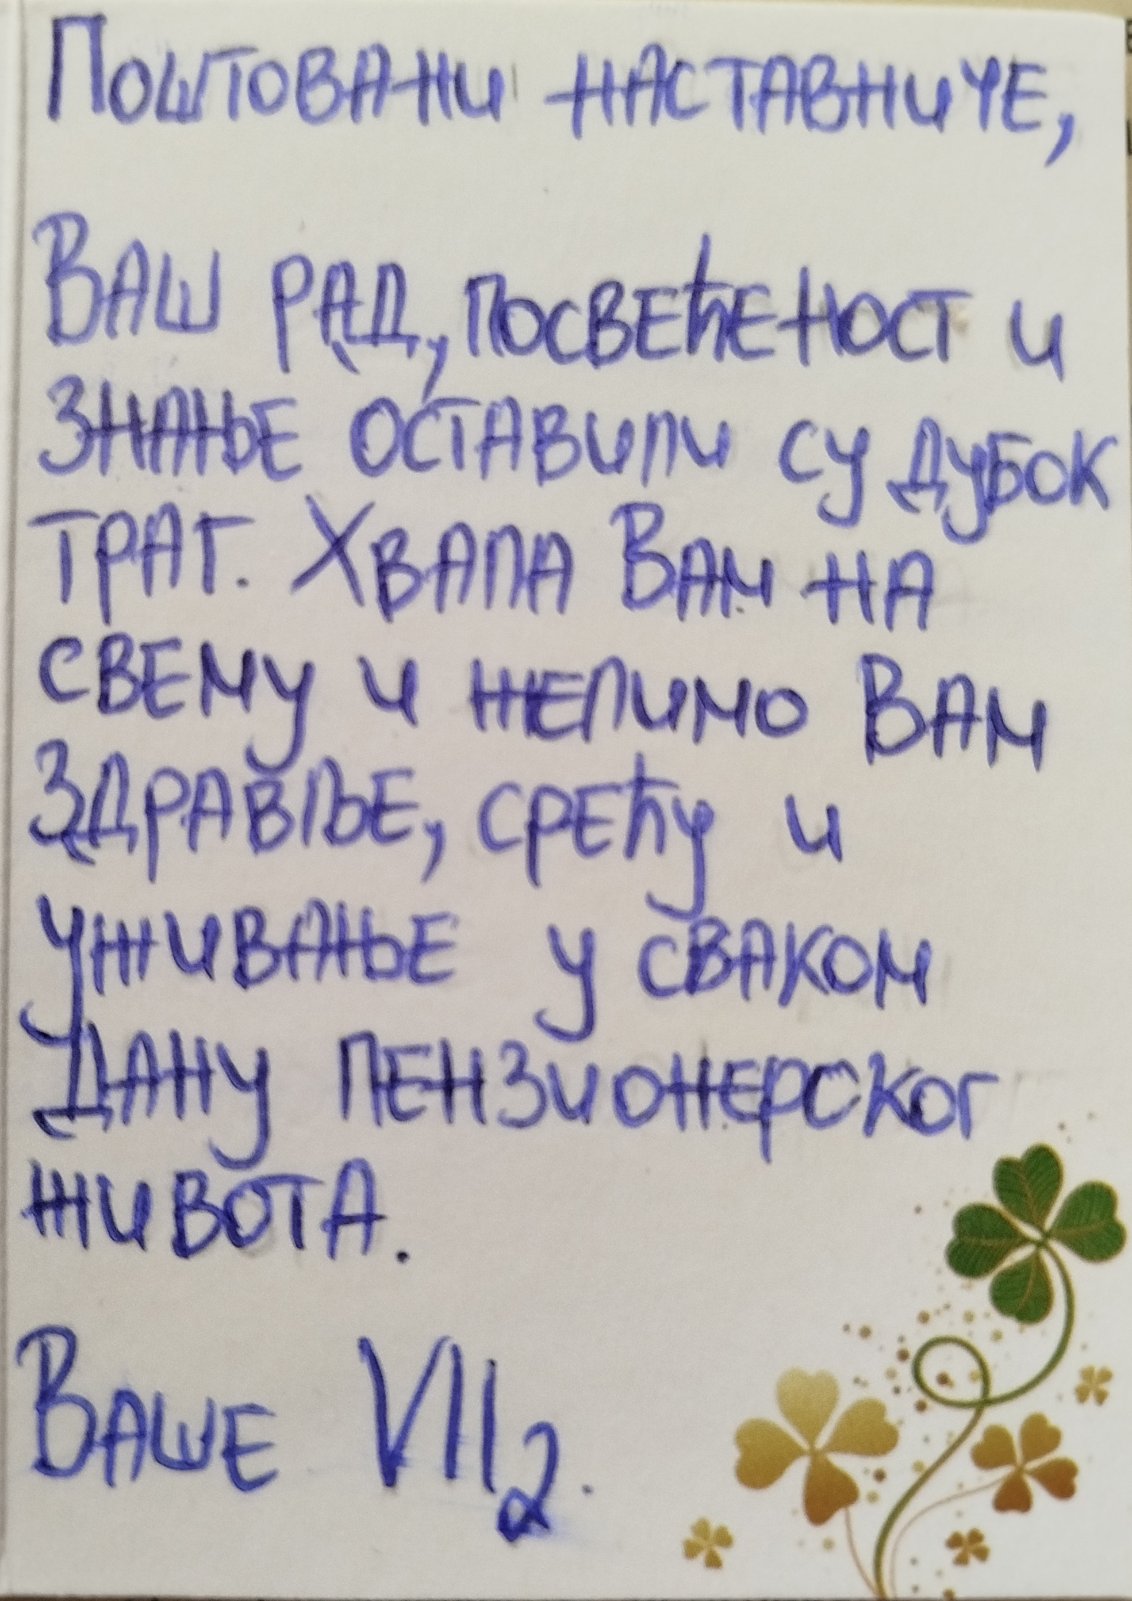 Поштовани наставниче,
Ваш рад, посвећеност и
знање оставили су дубок
траг. Хвала Вам на
свему и желимо Вам
здравље, срећу и
уживање у сваком
дану пензионерског
живота.
Ваше VII2.